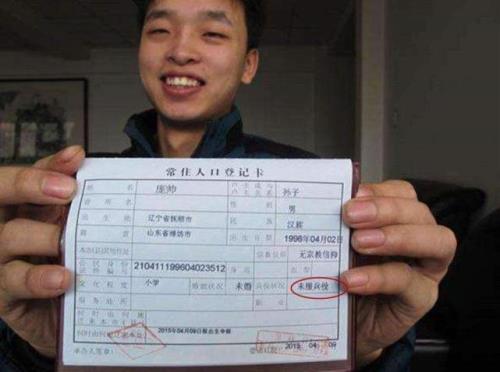 常住人口登记卡
姓 名 庞帅 户主或与户主关系 孙子
曾用名 性别 男
出生地 辽宁省抚顺市 民族 汉族
籍贯 山东省潍坊市 出生日期 1996年04月02日
宗教信仰 无宗教信仰
210411199604023512 身高 血型
文化程度 小学 婚姻状况 未婚 兵役状况 未服兵役
服务处所 职业
2015年04月09日
承办人签章: 2015 04 09